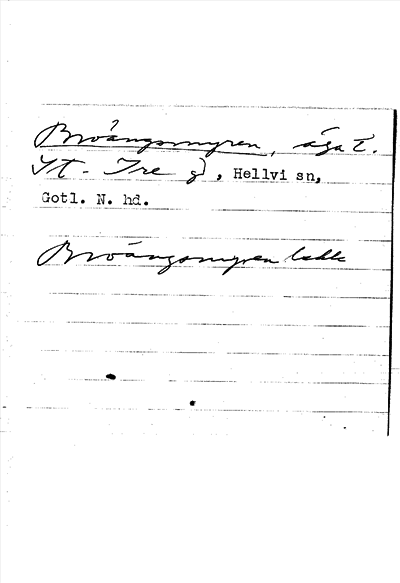 Broångsmyren, äga t.
St. Ire gd, Hellvi sn,
Gotl. N. hd.
Broångsmyren